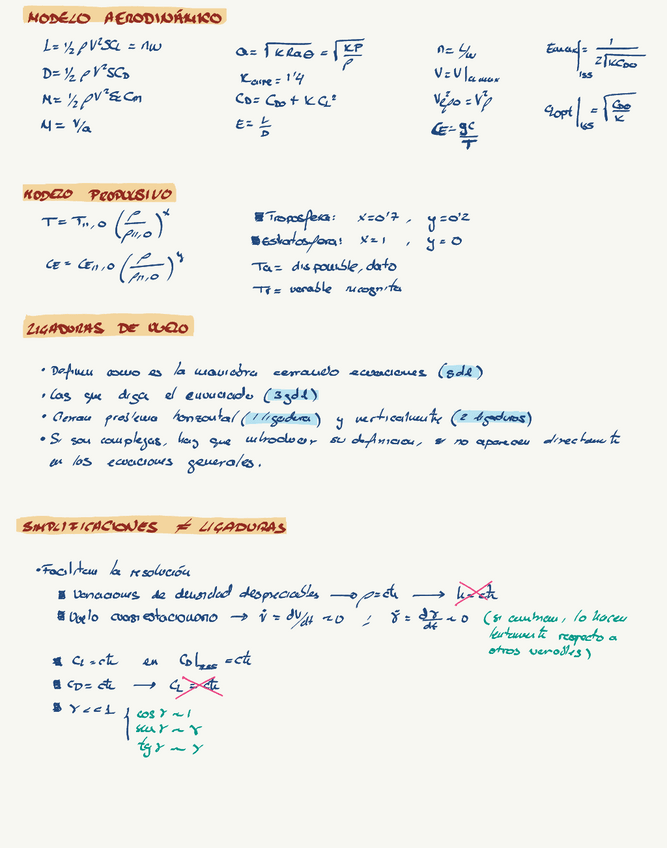 MODELO AERODINÁMICO
L = 1/2 ρV²SCL = nw
D = 1/2 ρV²SCD
M = 1/2 ρV²ScCm
M = V/a
a = √KRaθ = √KP/ρ
Kaire = 1'4
CD = CD0 + KCL²
E = L/D
n = L/w
V = V|
V²ρ0 = V²ρ
CE = gc/T
Emax|ISS = 1/2√KCD0
CLopt|ISS = √CD0/K
MODELO PROPULSIVO
T = T11,0 (ρ/ρ11,0)^x
CE = CE11,0 (ρ/ρ11,0)^y
Troposfera: x=0'7, y=0'2
Estratosfera: x=1, y=0
Ta = disponible, dato
Tr = variable incognita
LIGADURAS DE VUELO
• Definen como es la maniobra cerrando ecuaciones (gdl)
• Las que diga el enunciado (3gdl)
• Cierran problema horizontal (1 ligadura) y verticalmente (2 ligaduras)
• Si son complejas, hay que introducir su definicion, si no aparecen directamente
en las ecuaciones generales.
SIMPLIFICACIONES ≠ LIGADURAS
• Facilitan la resolución
Variaciones de densidad despreciables → ρ=cte → h=cte
Vuelo cuasiestacionario → v̇ = dV/dt ~ 0 ; γ̇ = dγ/dt ~ 0 (si cambian, lo hacen
lentamente respecto a
otras variables)
CL = cte en CD| = cte
CD = cte → CL = cte
γ << 1 { cos γ ~ 1
sen γ ~ γ
tg γ ~ γ